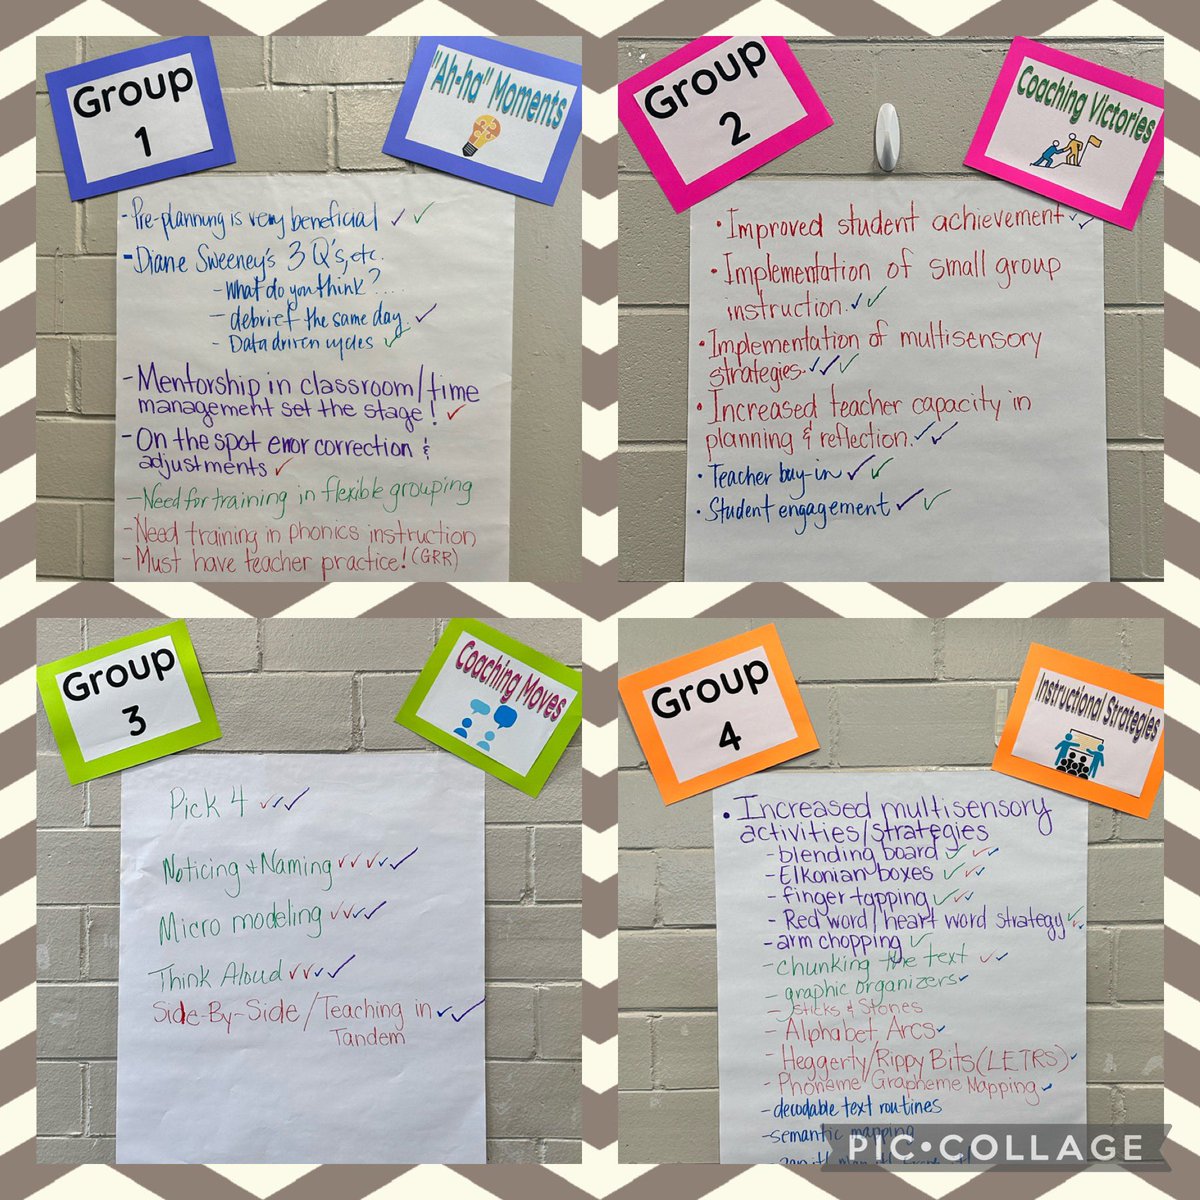 Group
1
"Ah-ha" Moments
-Pre-planning is very beneficial ✓ ✓
-Diane Sweeney's 3 Q's, etc.
-What do you think?....
-debrief the same day ✓
-Data driven cycles ✓
-Mentorship in classroom/time
management set the stage! ✓
-On the spot error correction &
adjustments ✓
-Need for training in flexible grouping
-Need training in phonics instruction
-Must have teacher practice! (GRR)
Group
2
Coaching Victories
• Improved student achievement ✓✓
• Implementation of small group
instruction. ✓✓
• Implementation of multisensory
strategies. ✓✓✓
• Increased teacher capacity in
planning & reflection. ✓✓
• Teacher buy-in ✓✓
• Student engagement ✓✓
Group
3
Coaching Moves
Pick 4 ✓✓✓
Noticing + Naming ✓✓✓✓✓
Micro modeling ✓✓✓✓
Think Aloud ✓✓✓✓
Side-By-Side/Teaching in ✓✓
Tandem
Group
4
Instructional Strategies
• Increased multisensory
activities/strategies
-blending board ✓✓✓
-Elkonian boxes ✓✓✓
-finger tapping ✓✓✓
-Red word/heart word strategy ✓✓
-arm chopping ✓
-chunking the text ✓✓
-graphic organizers ✓
-Sticks & Stones
-Alphabet Arcs ✓
-Heggerty/Rippy Bits (LETRS) ✓
-Phoneme Grapheme Mapping ✓
-decodable text routines
-semantic mapping
PIC•COLLAGE